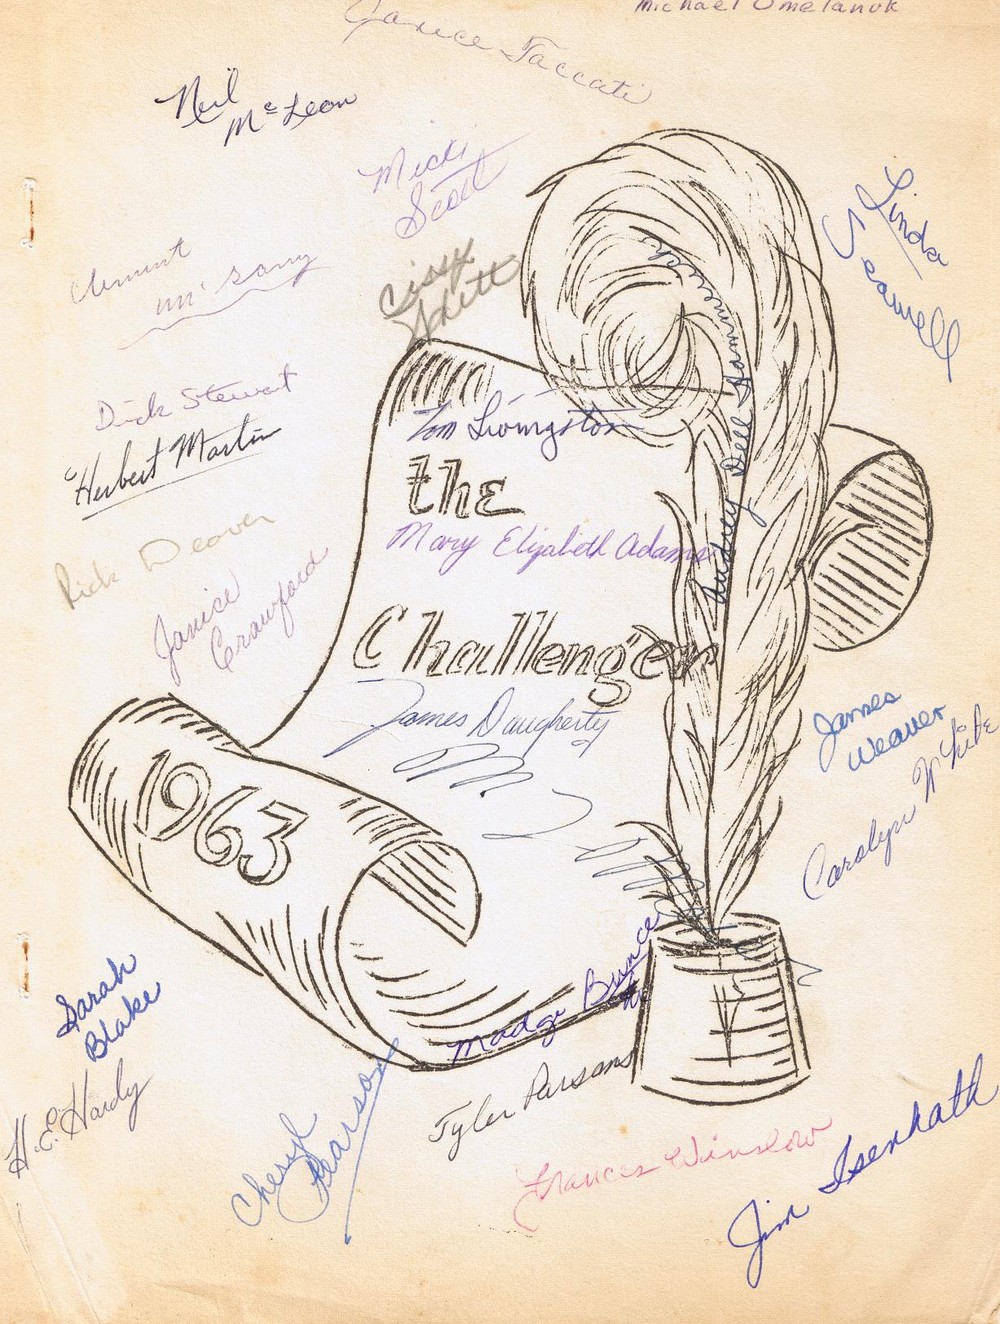 Michael Omelanuk
Janice Taccati
Neil
McLeon
Micki
Scott
Linda
Seawell
Cissy
Dick Stewart
Tom Livingston
Herbert Martin
the
Mary Elizabeth Adams
Audrey Dell
Rick Deaver
Janice
Crawford
Challenger
James Daugherty
James
Weaver
Carolyn
1963
Sarah
Blake
Madge Bunce
H.E. Hardy
Tyler Parsons
Cheryl
Pearson
Frances Winslow
Jim Isenhath